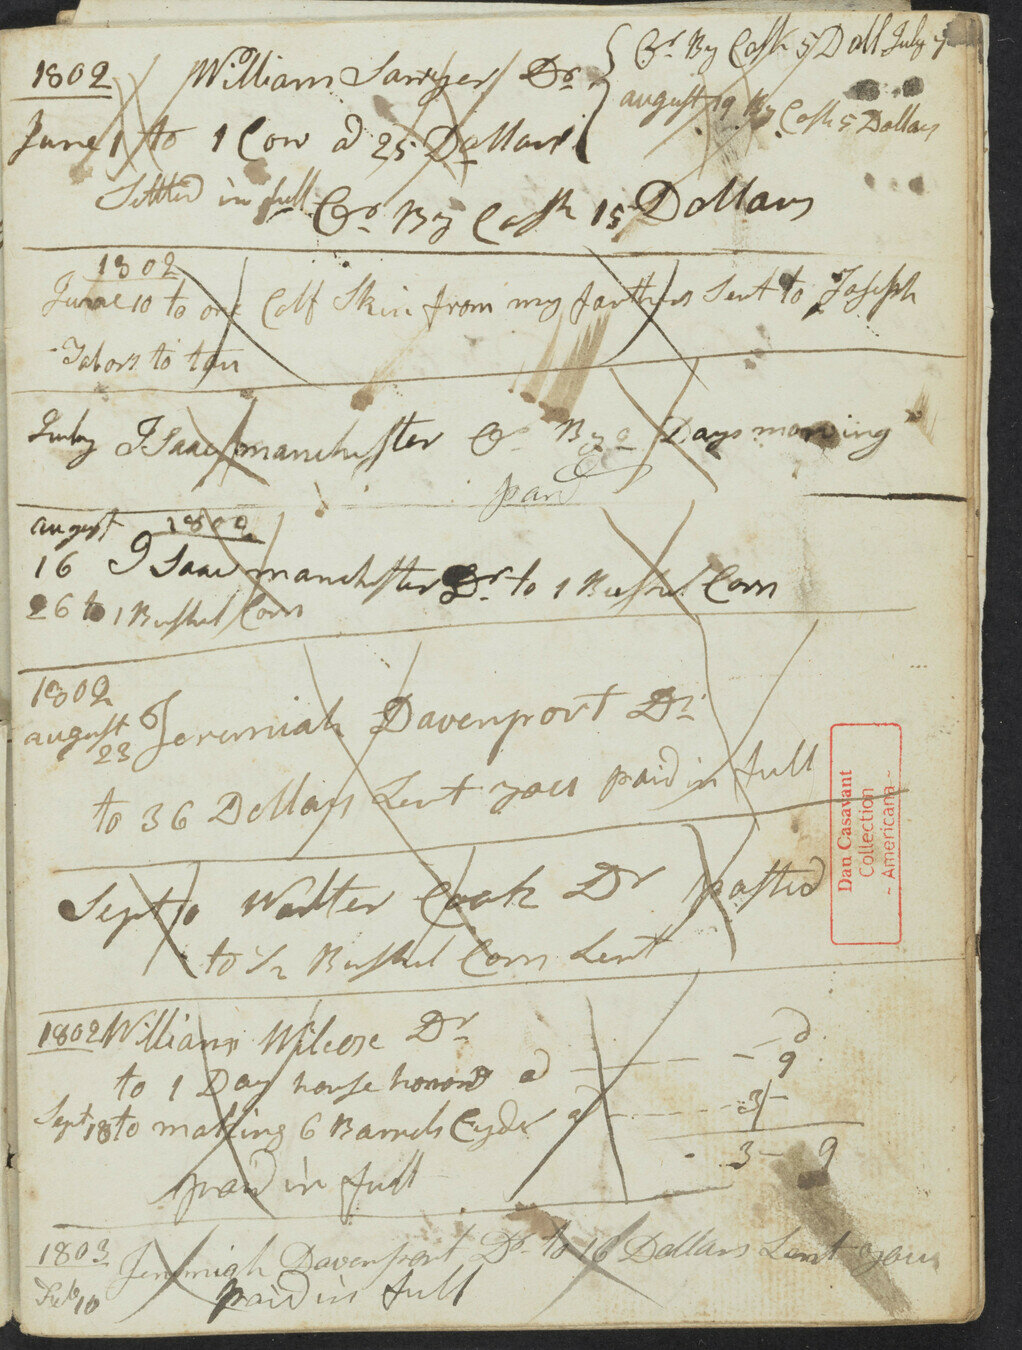 1802 William Sawyer Dr
Cr By Cash 5 Doll July 7
June 1 to 1 Cow @ 25 Dollars
august 19 By Cash 5 Dollars
Settled in full Cr By Cash 15 Dollars
1802
June 10 to one Calf Skin from my farthers Sent to Joseph
Tabors to tan
July Isaac manchester Cr By 2 Days mowing
paid
august 1802
16 Isaac manchester Dr to 1 Bushel Corn
26 to 1 Bushel Corn
1802
august 23 Jeremiah Davenport Dr
to 36 Dollars Lent you paid in full
Sept 10 Walter Cook Dr posted
to 1/2 Bushel Corn Lent
1802 William Wilcose Dr
d
to 1 Day horse @ 9
Sept 18 to making 6 Barrels Cyder @ 3/-
3-9
paid in full
1803
Feb 10 Jeremiah Davenport Dr to 16 Dollars Lent you
paid in full
Dan Casavant
Collection
~ Americana ~